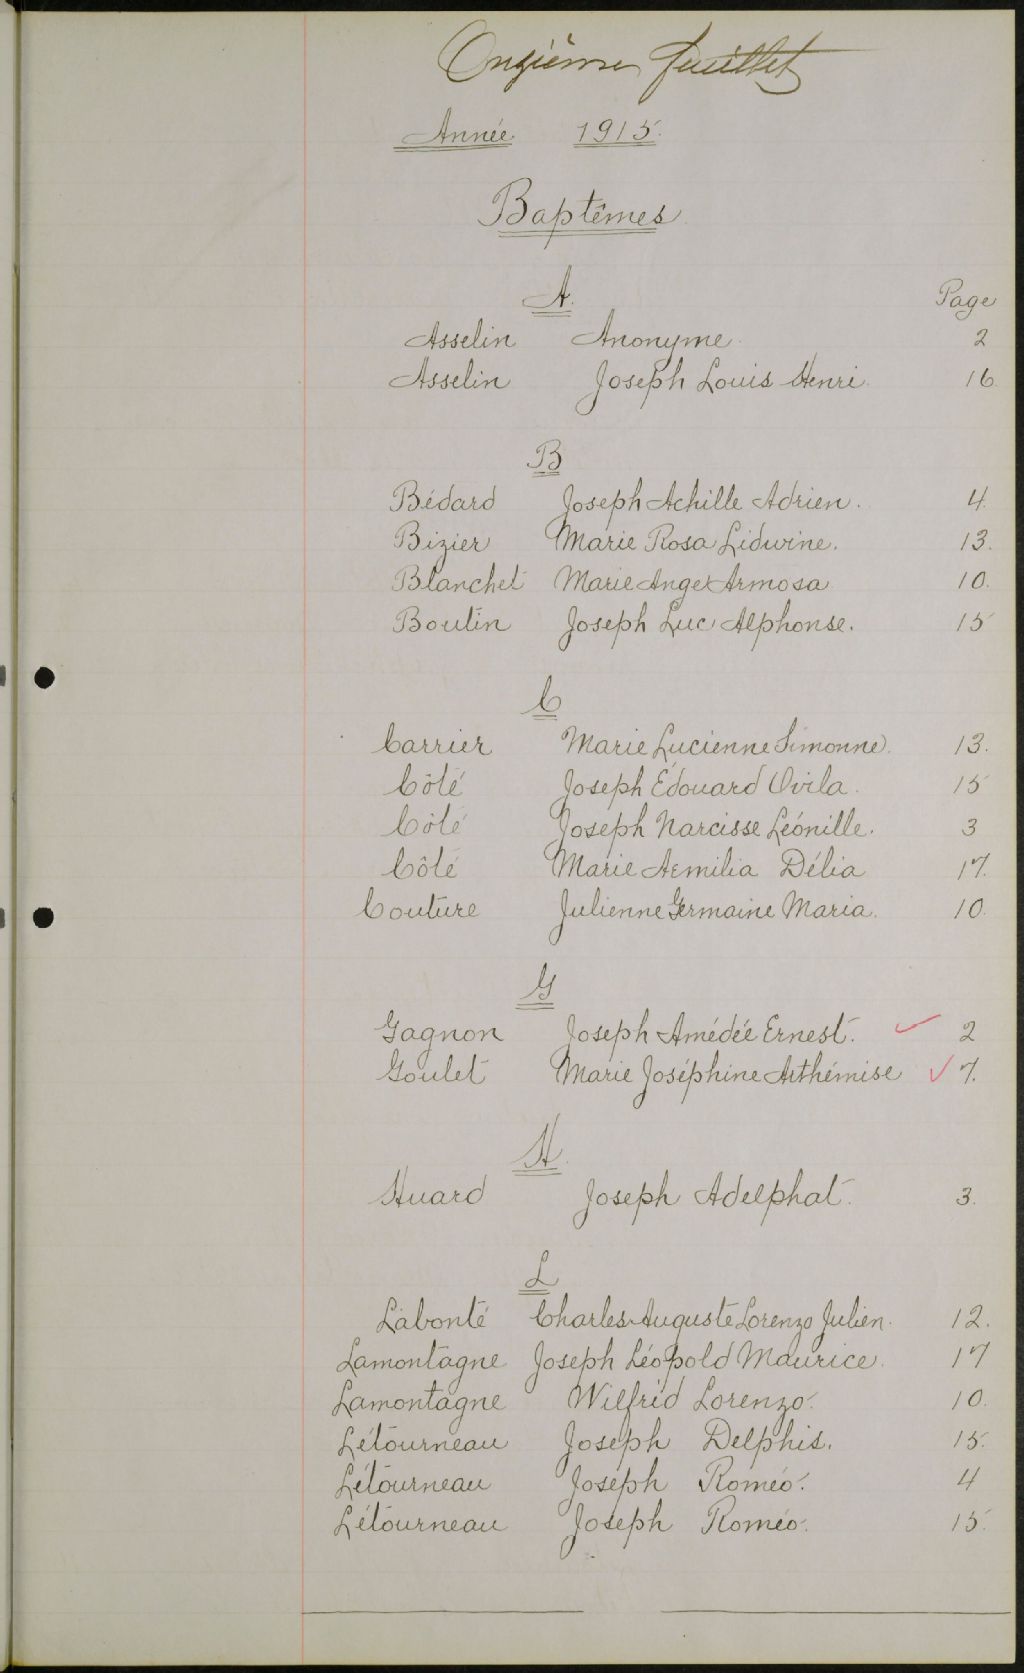 Onzième feuillet
Année 1915.
Baptêmes
A.
Page
Asselin Anonyme. 2
Asselin Joseph Louis Henri. 16.
B
Bédard Joseph Achille Adrien. 4.
Bizier Marie Rosa Lidwine. 13.
Blanchet Marie Ange Armosa 10.
Boutin Joseph Luc Alphonse. 15
C
Carrier Marie Lucienne Simonne. 13.
Côté Joseph Édouard Ovila. 15
Côté Joseph Narcisse Léonille. 3
Côté Marie Aemilia Délia 17.
Couture Julienne Germaine Maria. 10.
G
Gagnon Joseph Amédée Ernest. 2
Goulet Marie Joséphine Arthémise 7.
H.
Huard Joseph Adelphat. 3.
L
Labonté Charles Auguste Lorenzo Julien. 12.
Lamontagne Joseph Léopold Maurice. 17
Lamontagne Wilfrid Lorenzo. 10.
Létourneau Joseph Delphis. 15.
Létourneau Joseph Roméo. 4
Létourneau Joseph Roméo. 15.